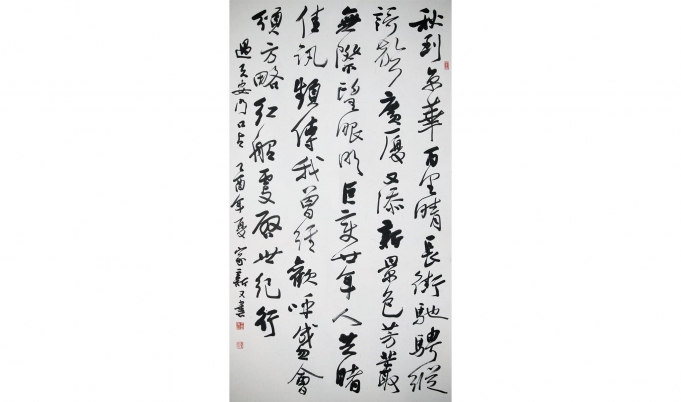 秋到京華百里晴長街馳騁縱
詩廣厦又添新景色芳叢
無際眼明巨變廿年人共睹
佳訊頻傳我曾經歡呼盛會
頌方略紅船啟世紀行
過天安门口占 乙酉年夏 家新又書